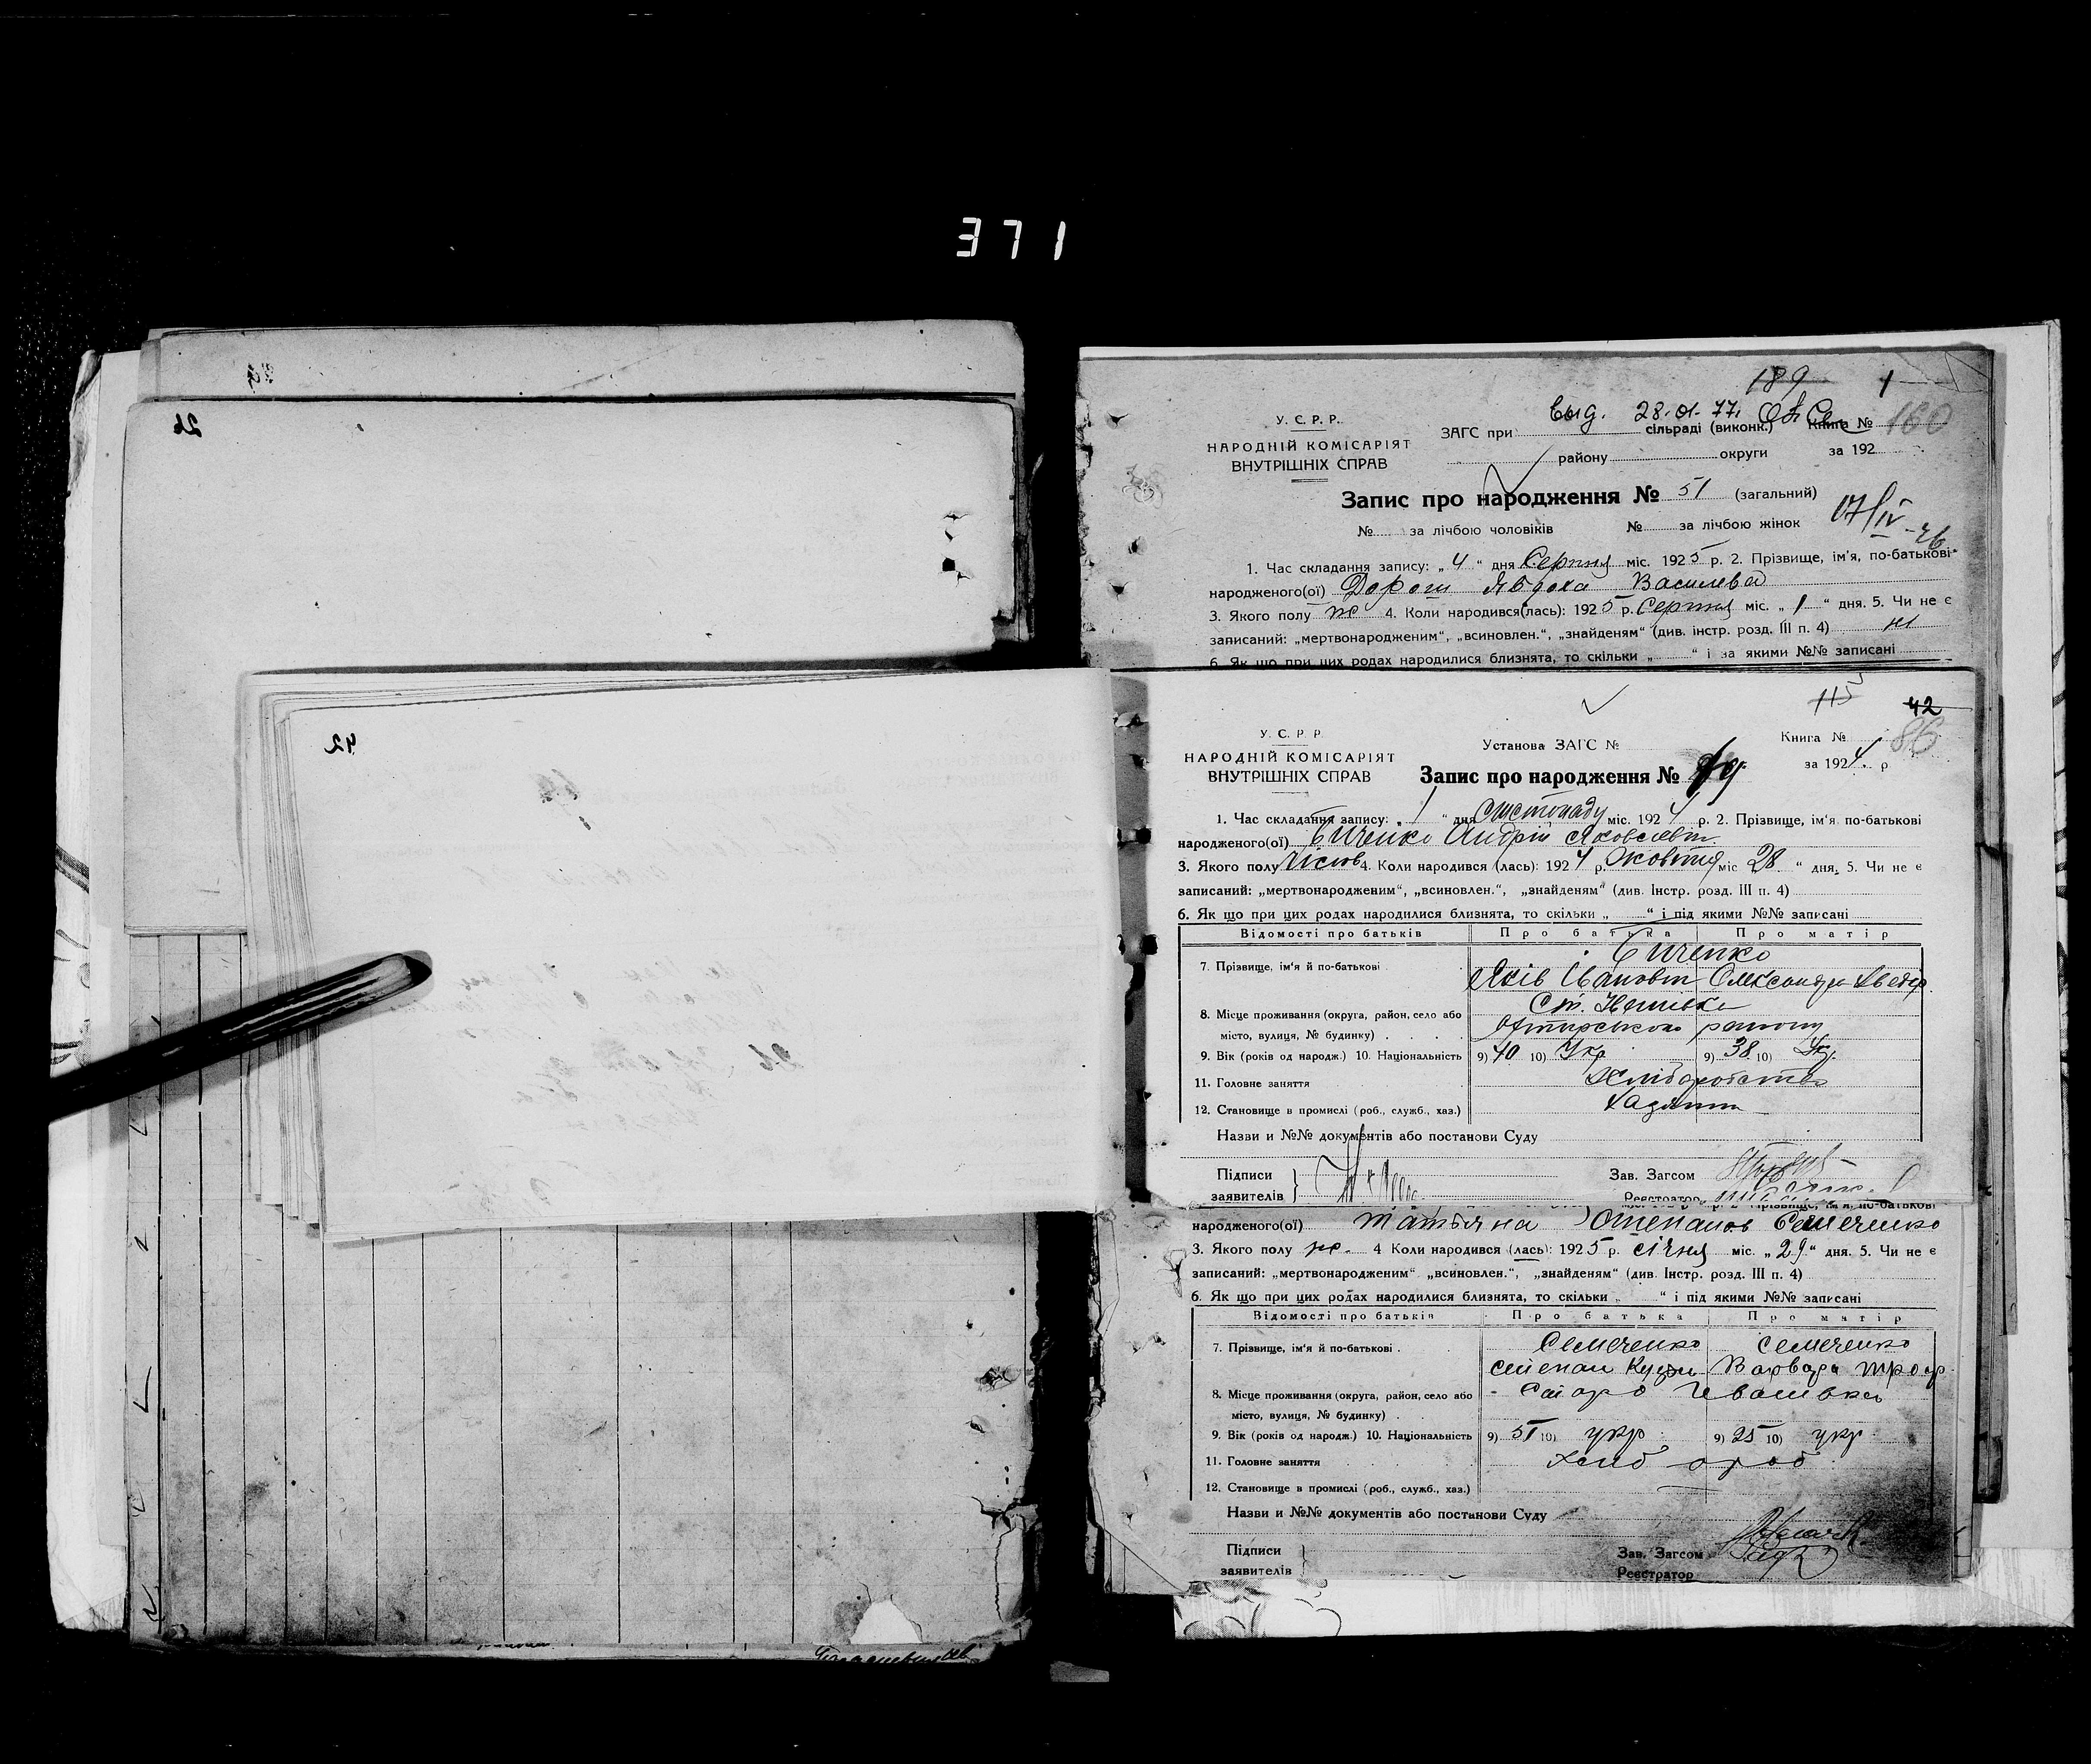 371
26
42
189 1
Выд. 28.01.77.
У. С. Р. Р.
НАРОДНІЙ КОМІСАРІЯТ
ВНУТРІШНІХ СПРАВ
ЗАГС при сільраді (виконк.) Книга № 160
району округи за 192
Запис про народження № 51 (загальний)
№ за лічбою чоловіків № за лічбою жінок
1. Час складання запису: „ 4 “ дня Серпня міс. 1925 р. 2. Прізвище, ім'я, по-батькові
народженого(ої) Дорош Явдоха Василева
3. Якого полу ж 4. Коли народився(лась): 1925 р. Серпня міс. „ 1 “ дня. 5. Чи не є
записаний: „мертвонародженим“, „всиновлен.“, „знайденям“ (див. інстр. розд. III п. 4) ні
6. Як що при цих родах народилися близнята, то скільки „ “ і за якими №№ записані
115 42
86
У. С. Р. Р.
НАРОДНІЙ КОМІСАРІЯТ
ВНУТРІШНІХ СПРАВ
Установа ЗАГС № Книга №
за 1924. р
Запис про народження №
1. Час складання запису: 1 “ дня Листопаду міс. 1924 р. 2. Прізвище, ім'я по-батькові
народженого(ої) Биченко Андрій Яковлевіч
3. Якого полу 4. Коли народився (лась): 1924 р. Жовтня міс 28 “ дня, 5. Чи не є
записаний: „мертвонародженим“, „всиновлен.“, „знайденям“ (див. Інстр. розд. III п. 4)
6. Як що при цих родах народилися близнята, то скільки „ “ і під якими №№ записані
Відомості про батьків Про батька Про матір
Биченко
7. Прізвище, ім'я й по-батькові
Яків Іванович Олександра
8. Місце проживання (округа, район, село або Ст. Іванівка
місто, вулиця, № будинку) району
9. Вік (років од народж.) 10. Національність 9) 40 10) Укр. 9) 38 10) Укр.
11. Головне заняття Хліборобство
12. Становище в промислі (роб., служб., хаз.)
Назви и №№ документів або постанови Суду
Підписи Зав. Загсом
заявителів Реєстратор
народженого(ої) Татьяна Степанов Семеченко
3. Якого полу ж. 4 Коли народився (лась): 1925 р. січня міс. „ 29 “ дня. 5. Чи не є
записаний: „мертвонародженим“ „всиновлен.“, „знайденям“ (див. Інстр. розд. III п. 4)
6. Як що при цих родах народилися близнята, то скільки „ “ і під якими №№ записані
Відомості про батьків Про батька Про матір
7. Прізвище, ім'я й по-батькові Семеченко Семеченко
Степан Варвара
8. Місце проживання (округа, район, село або Старо Іванівка
місто, вулиця, № будинку)
9. Вік (років од народж.) 10. Національність 9) 51 10) укр 9) 25 10) укр
11. Головне заняття хлібороб
12. Становище в промислі (роб., служб., хаз.)
Назви и №№ документів або постанови Суду
Підписи Зав. Загсом
заявителів Реєстратор